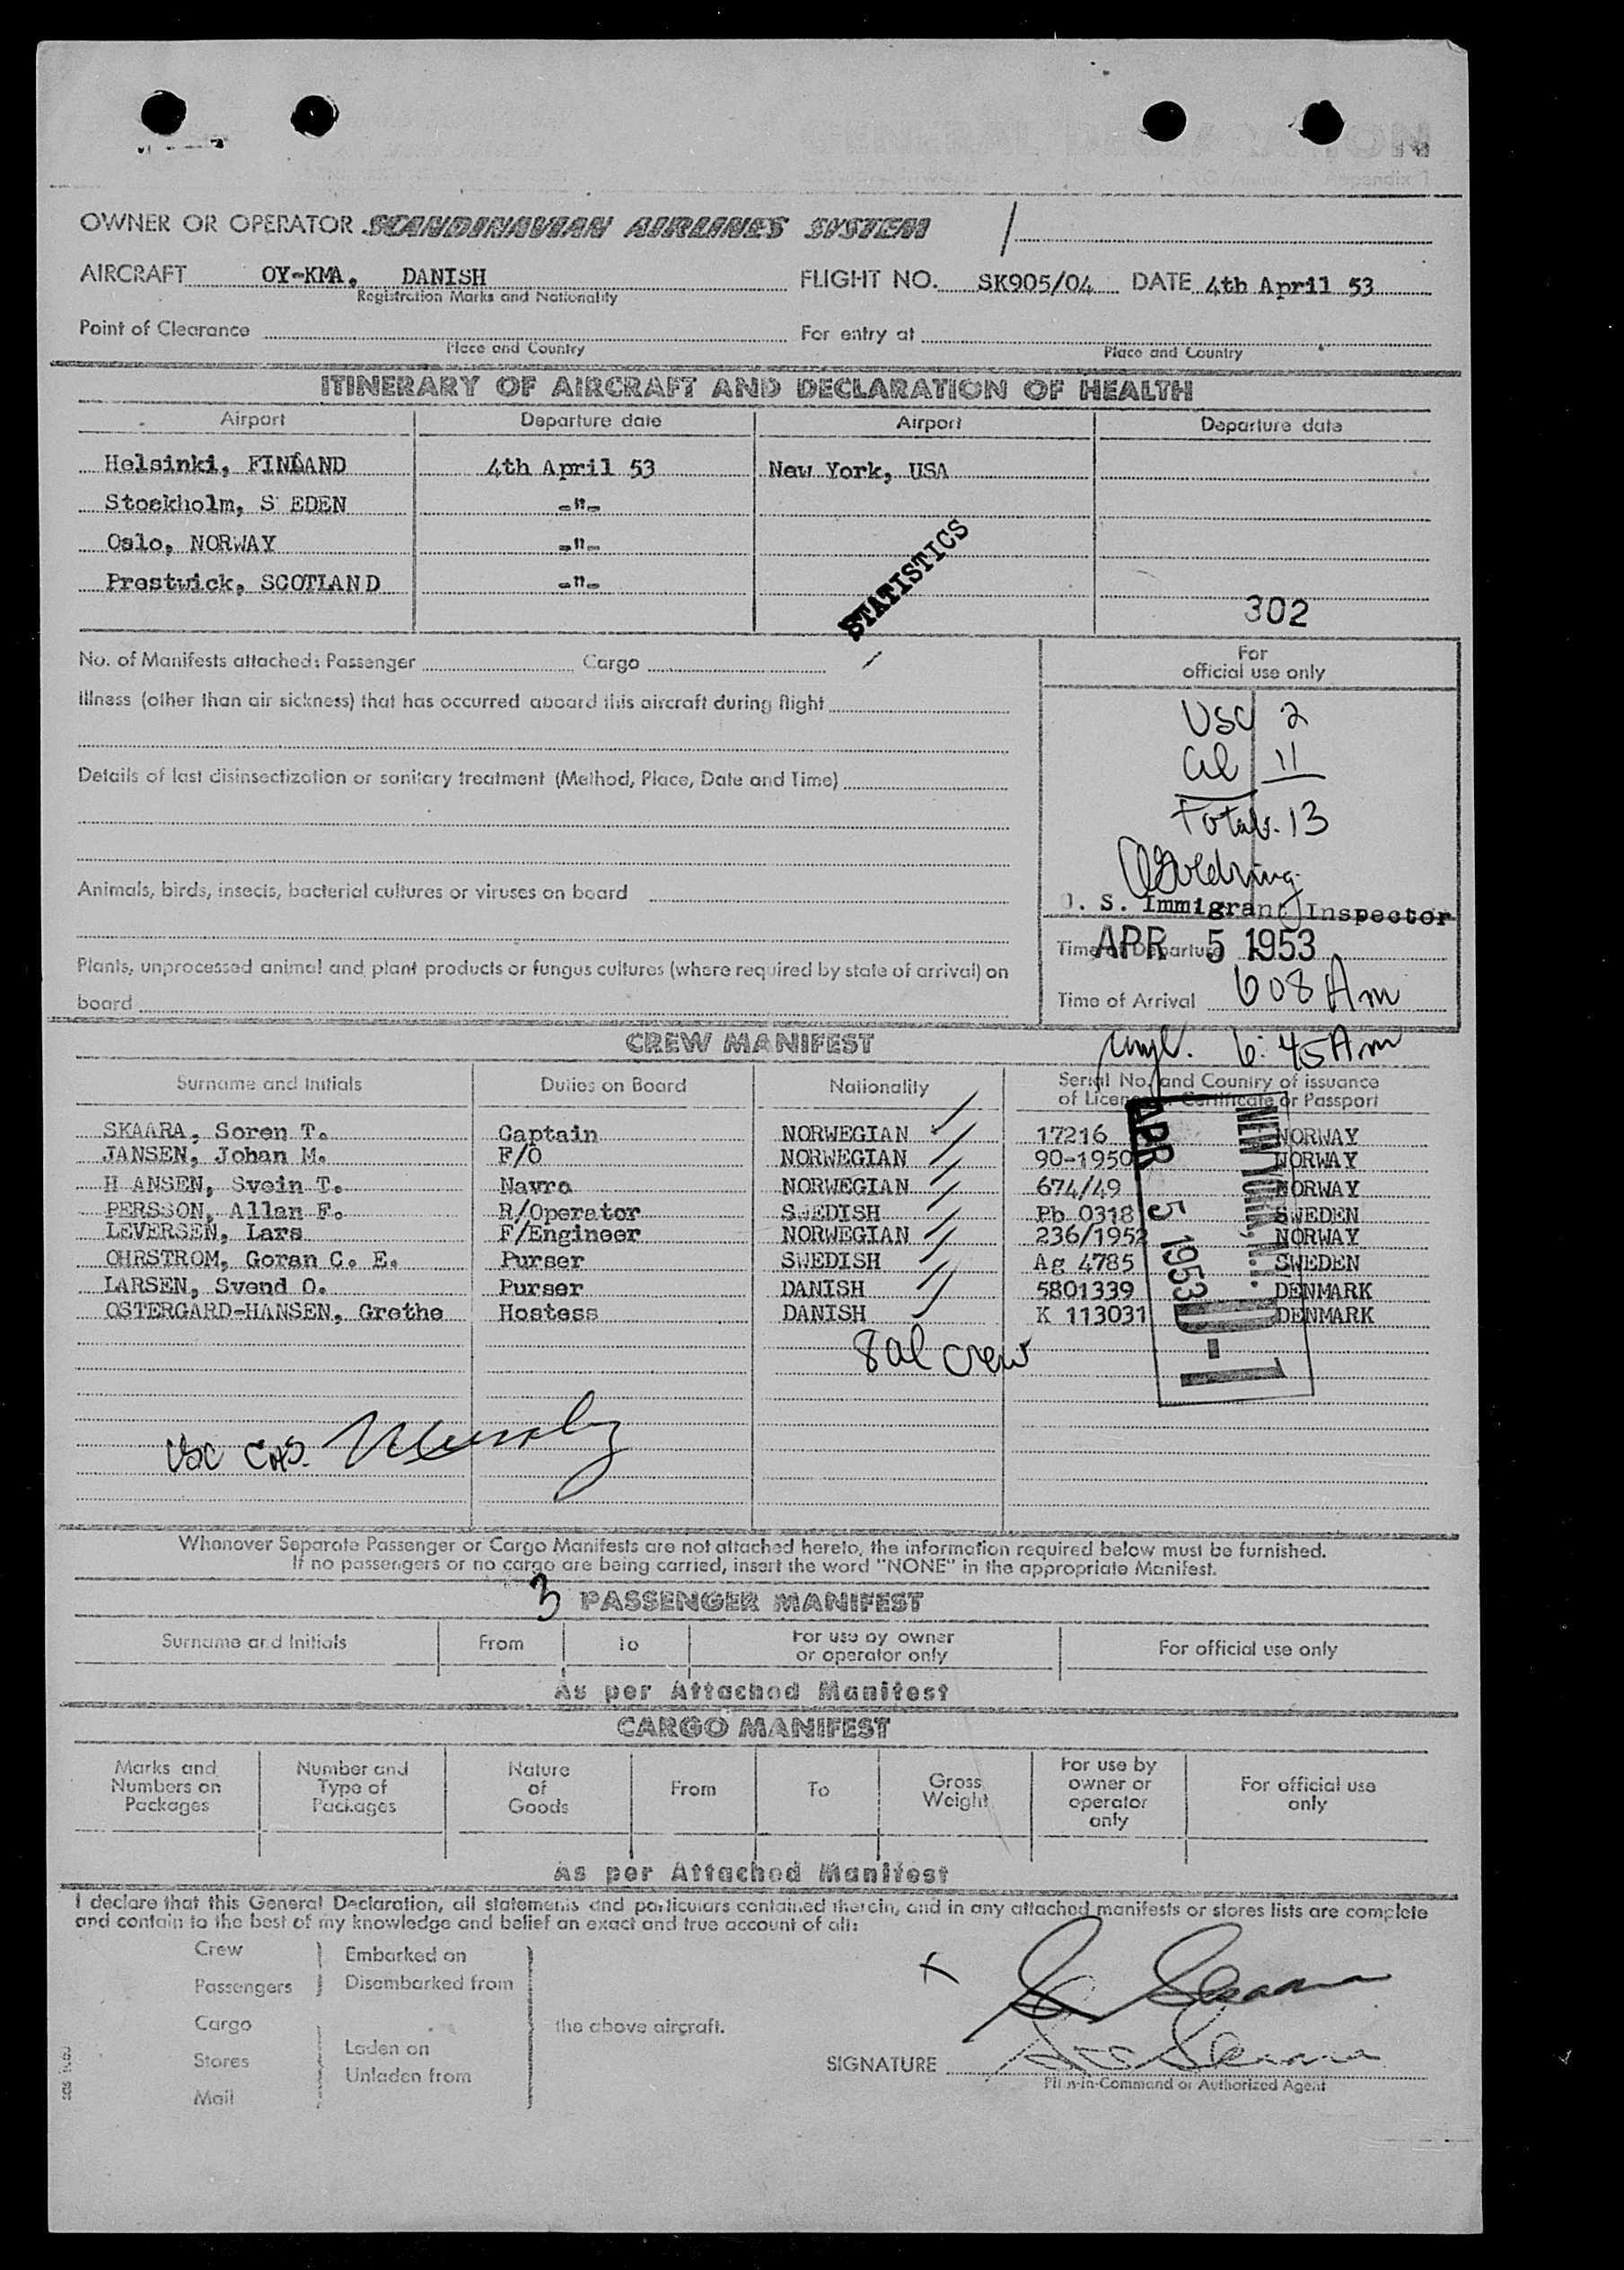 OWNER OR OPERATOR SCANDINAVIAN AIRLINES SYSTEM
AIRCRAFT OY-KMA, DANISH FLIGHT NO. SK905/04 DATE 4th April 53
Registration Marks and Nationality
Point of Clearance For entry at
Place and Country Place and Country
ITINERARY OF AIRCRAFT AND DECLARATION OF HEALTH
Airport Departure date Airport Departure date
Helsinki, FINLAND 4th April 53 New York, USA
Stockholm, S EDEN -"-
Oslo, NORWAY -"-
Prestwick, SCOTLAND -"-
STATISTICS
302
No. of Manifests attached: Passenger Cargo
For
official use only
Illness (other than air sickness) that has occurred aboard this aircraft during flight
USC 2
al 11
Total 13
Details of last disinsectization or sanitary treatment (Method, Place, Date and Time)
Animals, birds, insects, bacterial cultures or viruses on board
. S. Immigrant Inspector
Time of Departure APR 5 1953
Plants, unprocessed animal and plant products or fungus cultures (where required by state of arrival) on
board
Time of Arrival 608 Am
6:45 Am
CREW MANIFEST
Surname and Initials Duties on Board Nationality Serial No. and Country of issuance
of Licence or Certificate or Passport
SKAARA, Soren T. Captain NORWEGIAN 17216 NORWAY
JANSEN, Johan M. F/O NORWEGIAN 90-1950 NORWAY
H ANSEN, Svein T. Navro NORWEGIAN 674/49 NORWAY
PERSSON, Allan F. R/Operator SWEDISH Pb 0318 SWEDEN
LEVERSEN, Lars F/Engineer NORWEGIAN 236/1952 NORWAY
OHRSTROM, Goran C. E. Purser SWEDISH Ag 4785 SWEDEN
LARSEN, Svend O. Purser DANISH 5801339 DENMARK
OSTERGARD-HANSEN, Grethe Hostess DANISH K 113031 DENMARK
NEW YORK, N.Y.
APR 5 1953
D-1
8 al crew
Whenever Separate Passenger or Cargo Manifests are not attached hereto, the information required below must be furnished.
If no passengers or no cargo are being carried, insert the word "NONE" in the appropriate Manifest.
3 PASSENGER MANIFEST
Surname and Initials From To For use by owner
or operator only For official use only
As per Attached Manifest
CARGO MANIFEST
Marks and
Numbers on
Packages
Number and
Type of
Packages
Nature
of
Goods
From
To
Gross
Weight
For use by
owner or
operator
only
For official use
only
As per Attached Manifest
I declare that this General Declaration, all statements and particulars contained therein, and in any attached manifests or stores lists are complete
and contain to the best of my knowledge and belief an exact and true account of all:
Crew Embarked on
Passengers Disembarked from
Cargo the above aircraft.
Stores Laden on
Unladen from
Mail
SIGNATURE
Pilot-in-Command or Authorized Agent